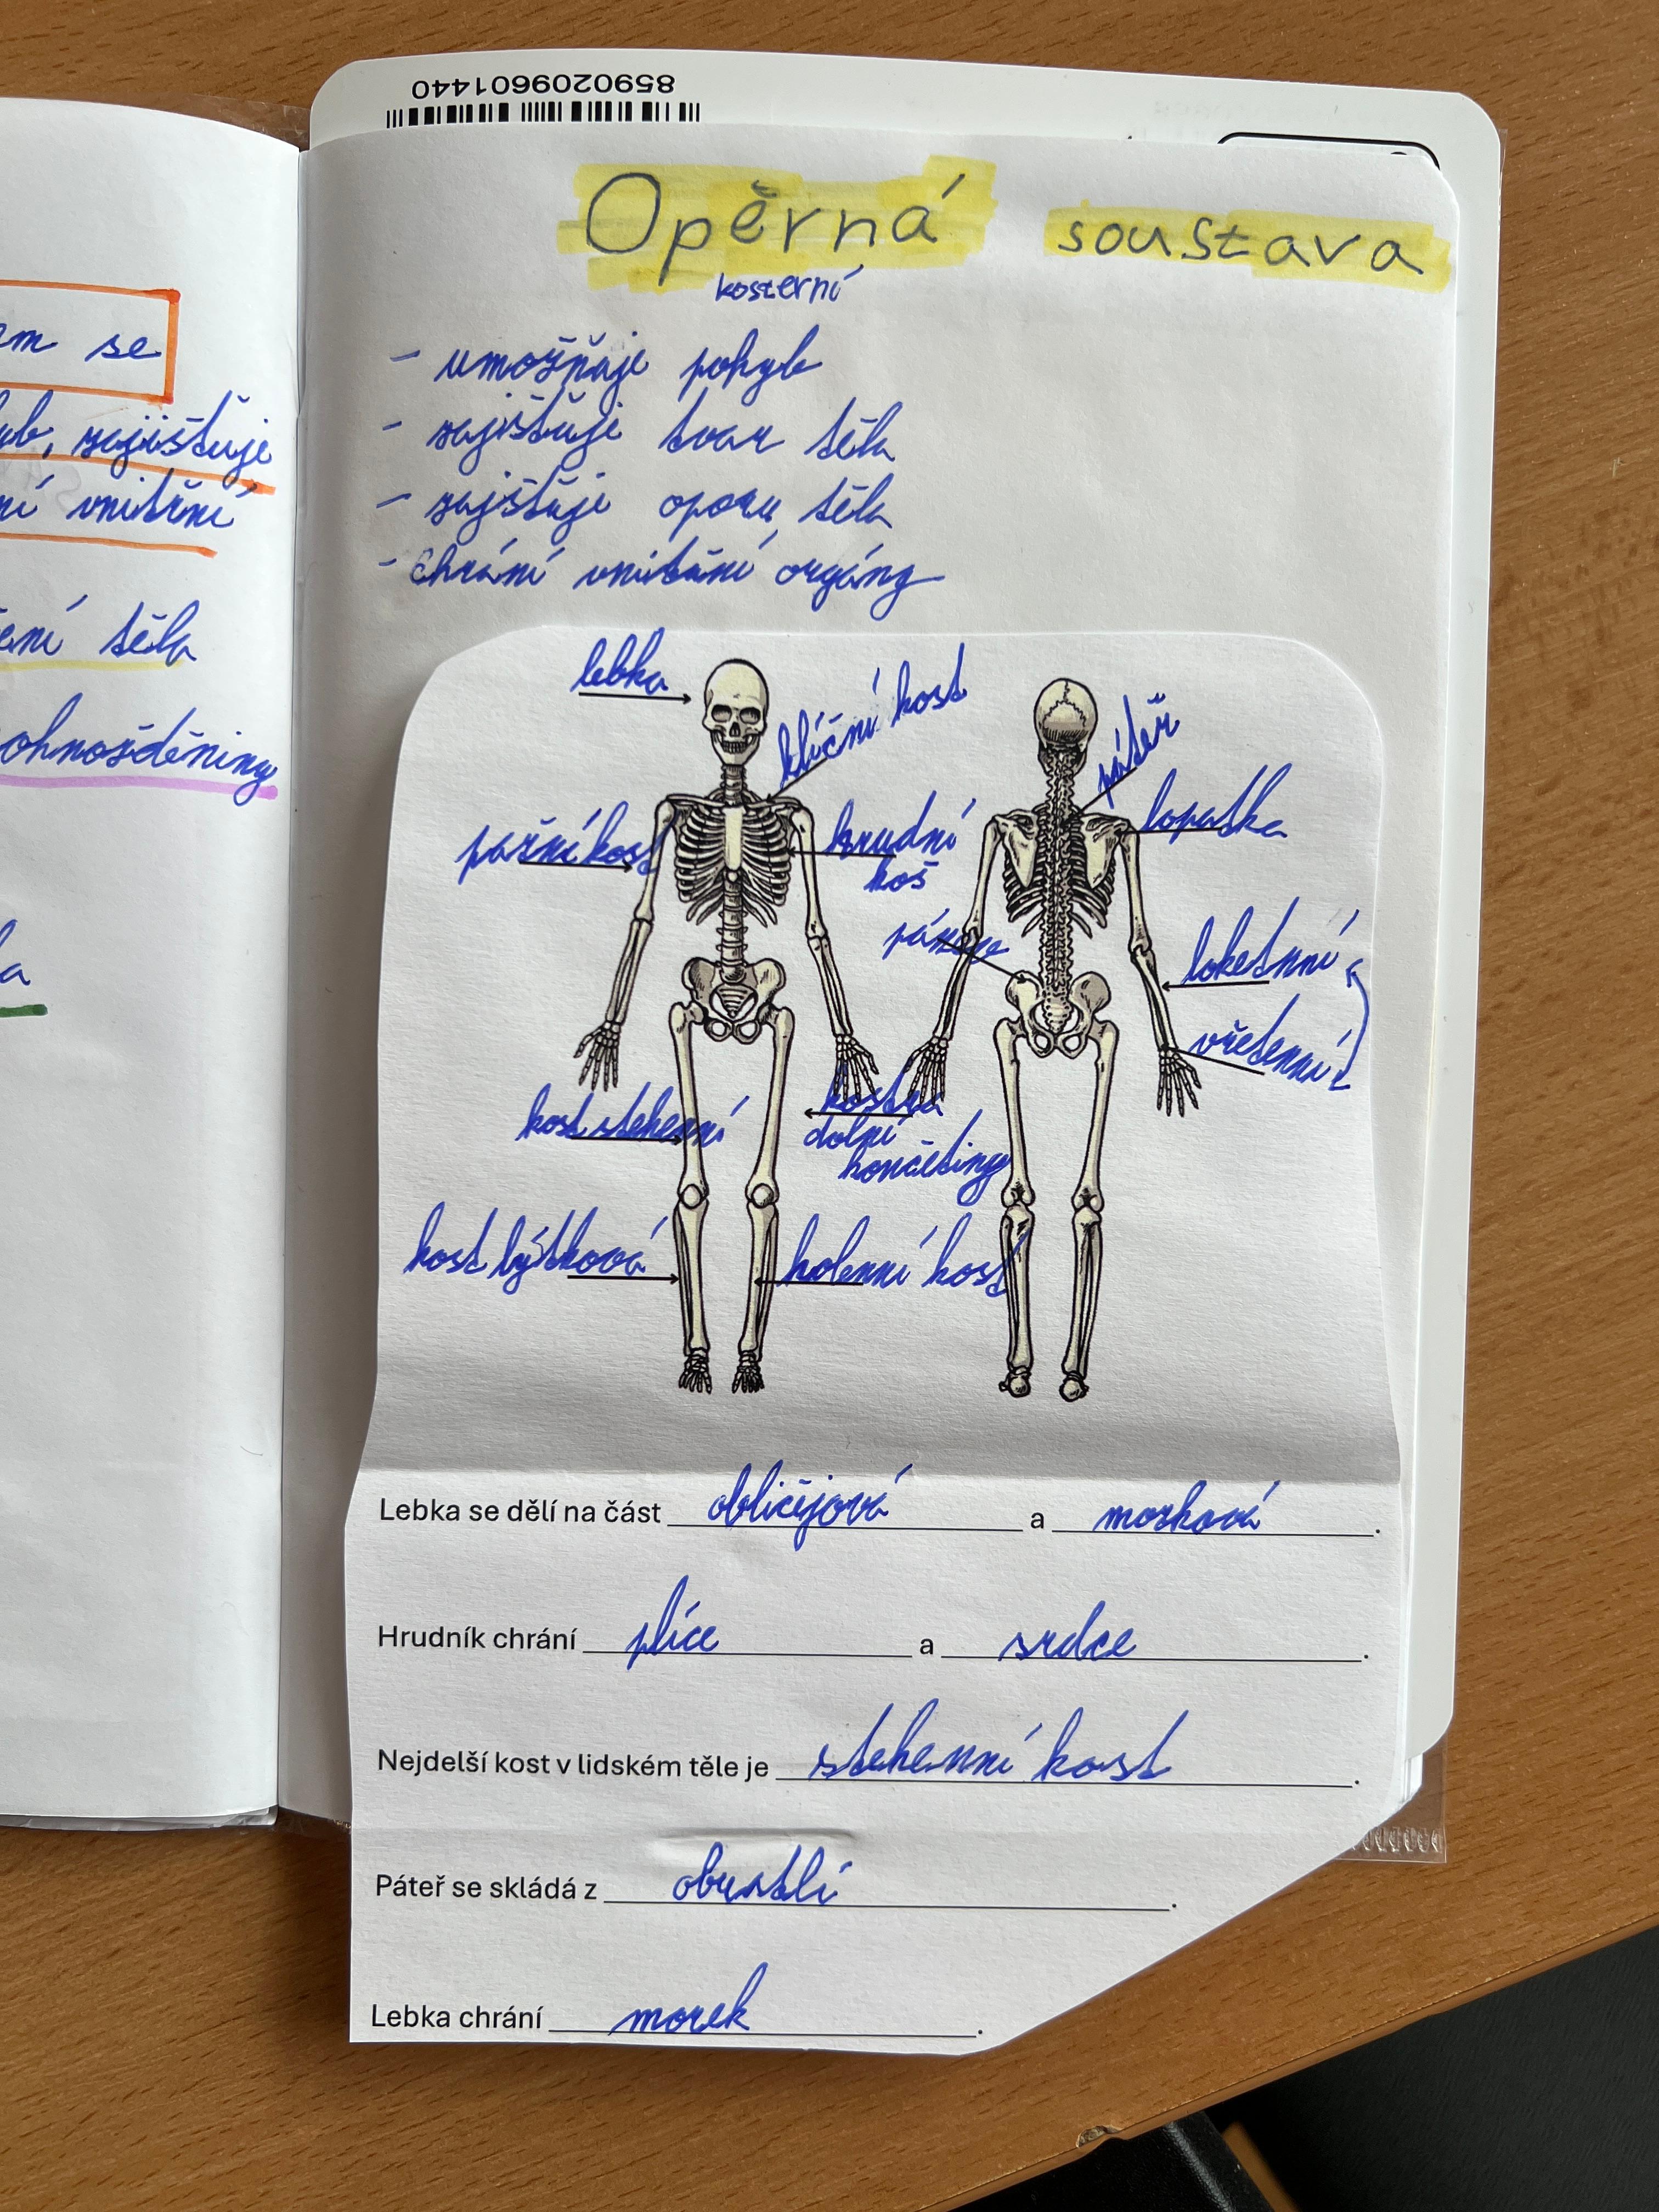 8590209601440
em se
yb, zajišťuje
ní vnitřní
ení těla
ohnožděniny
a
Opěrná soustava
kosterní
- umožňuje pohyb
- zajišťuje tvar těla
- zajišťuje oporu těla
- Chrání vnitřní orgány
lebka
klíční kost
pažní kost
hrudní
koš
páteř
lopatka
pánev
loketnní
vřetenní
kost stehenní
kostra
dolní
končetiny
kost lýtková
holenní kost
Lebka se dělí na část obličejová a mozková.
Hrudník chrání plíce a srdce.
Nejdelší kost v lidském těle je stehenní kost.
Páteř se skládá z obratlů.
Lebka chrání mozek.